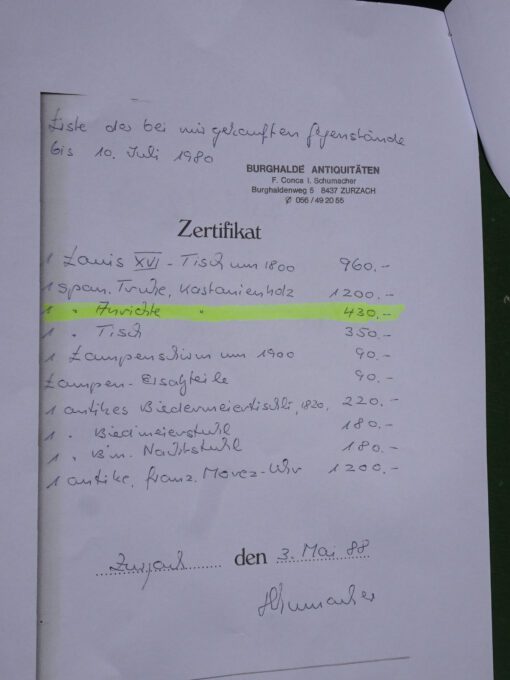 Liste der bei mir gekauften Gegenstände
bis 10. Juli 1980
BURGHALDE ANTIQUITÄTEN
F. Conca I. Schumacher
Burghaldenweg 5 8437 ZURZACH
✆ 056 / 49 20 55
Zertifikat
1 Louis XVI - Tisch um 1800 960.-
1 span. Truhe, Kastanienholz 1200.-
1 " Anrichte " 430.-
1 " Tisch 350.-
1 Lampenschirm um 1900 90.-
Lampen-Ersatzteile 90.-
1 antikes Biedermeiertischli, 1820, 220.-
1 " Biedmeierstuhl 180.-
1 " Bm. Nachtstuhl 180.-
1 antike, franz. Morez-Uhr 1200.-
Zurzach den 3. Mai 88
Schumacher